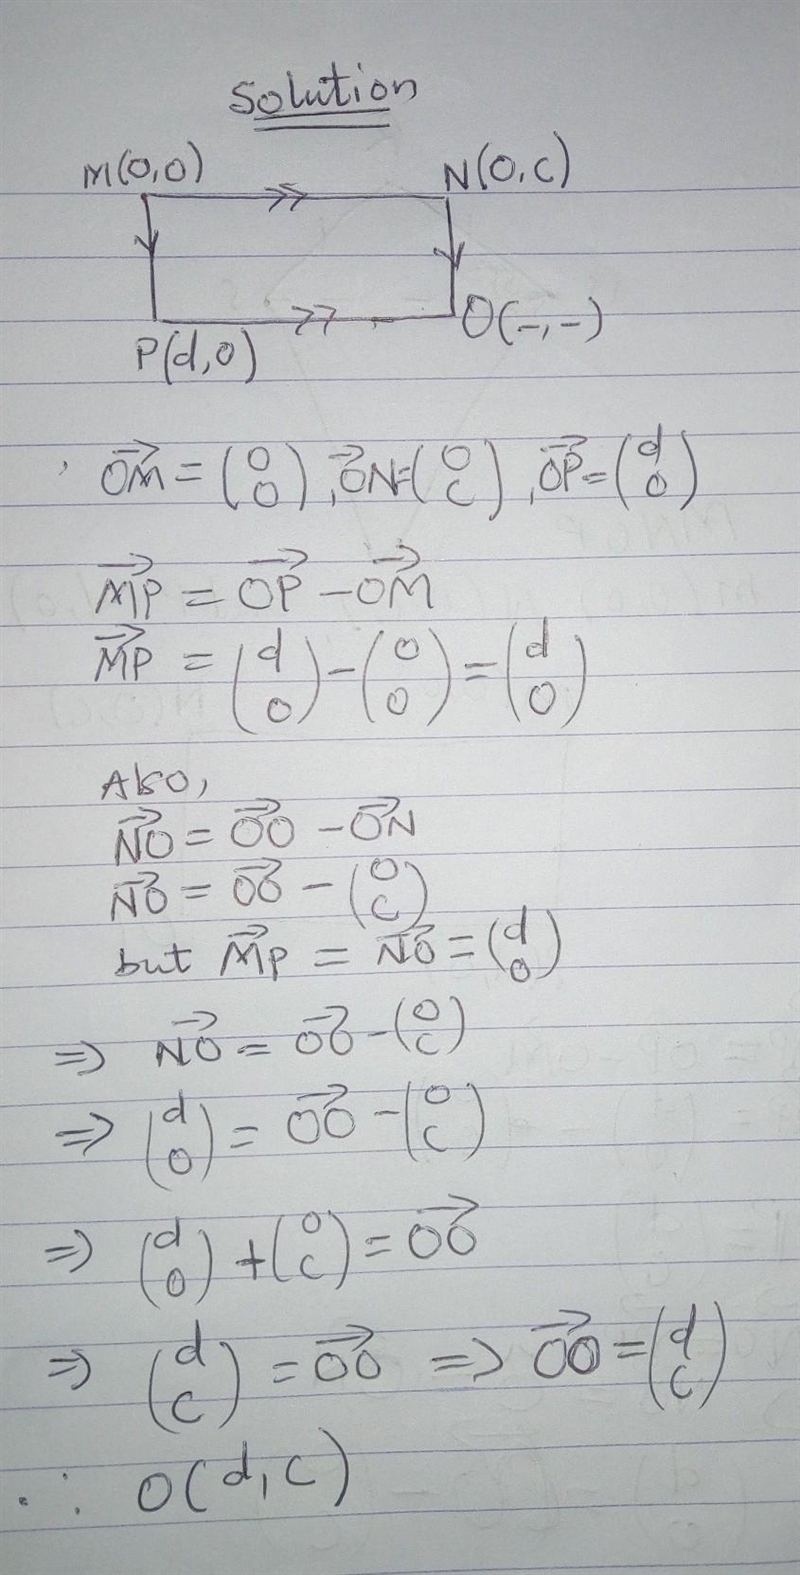 Solution
M(0,0) N(0,c)
P(d,0) O(-,-)
, →OM = (0 0), →ON = (0 c), →OP = (d 0)
→MP = →OP - →OM
→MP = (d 0) - (0 0) = (d 0)
Also,
→NO = →OO - →ON
→NO = →OO - (0 c)
but →MP = →NO = (d 0)
⇒ →NO = →OO - (0 c)
⇒ (d 0) = →OO - (0 c)
⇒ (d 0) + (0 c) = →OO
⇒ (d c) = →OO ⇒ →OO = (d c)
∴ O(d,c)